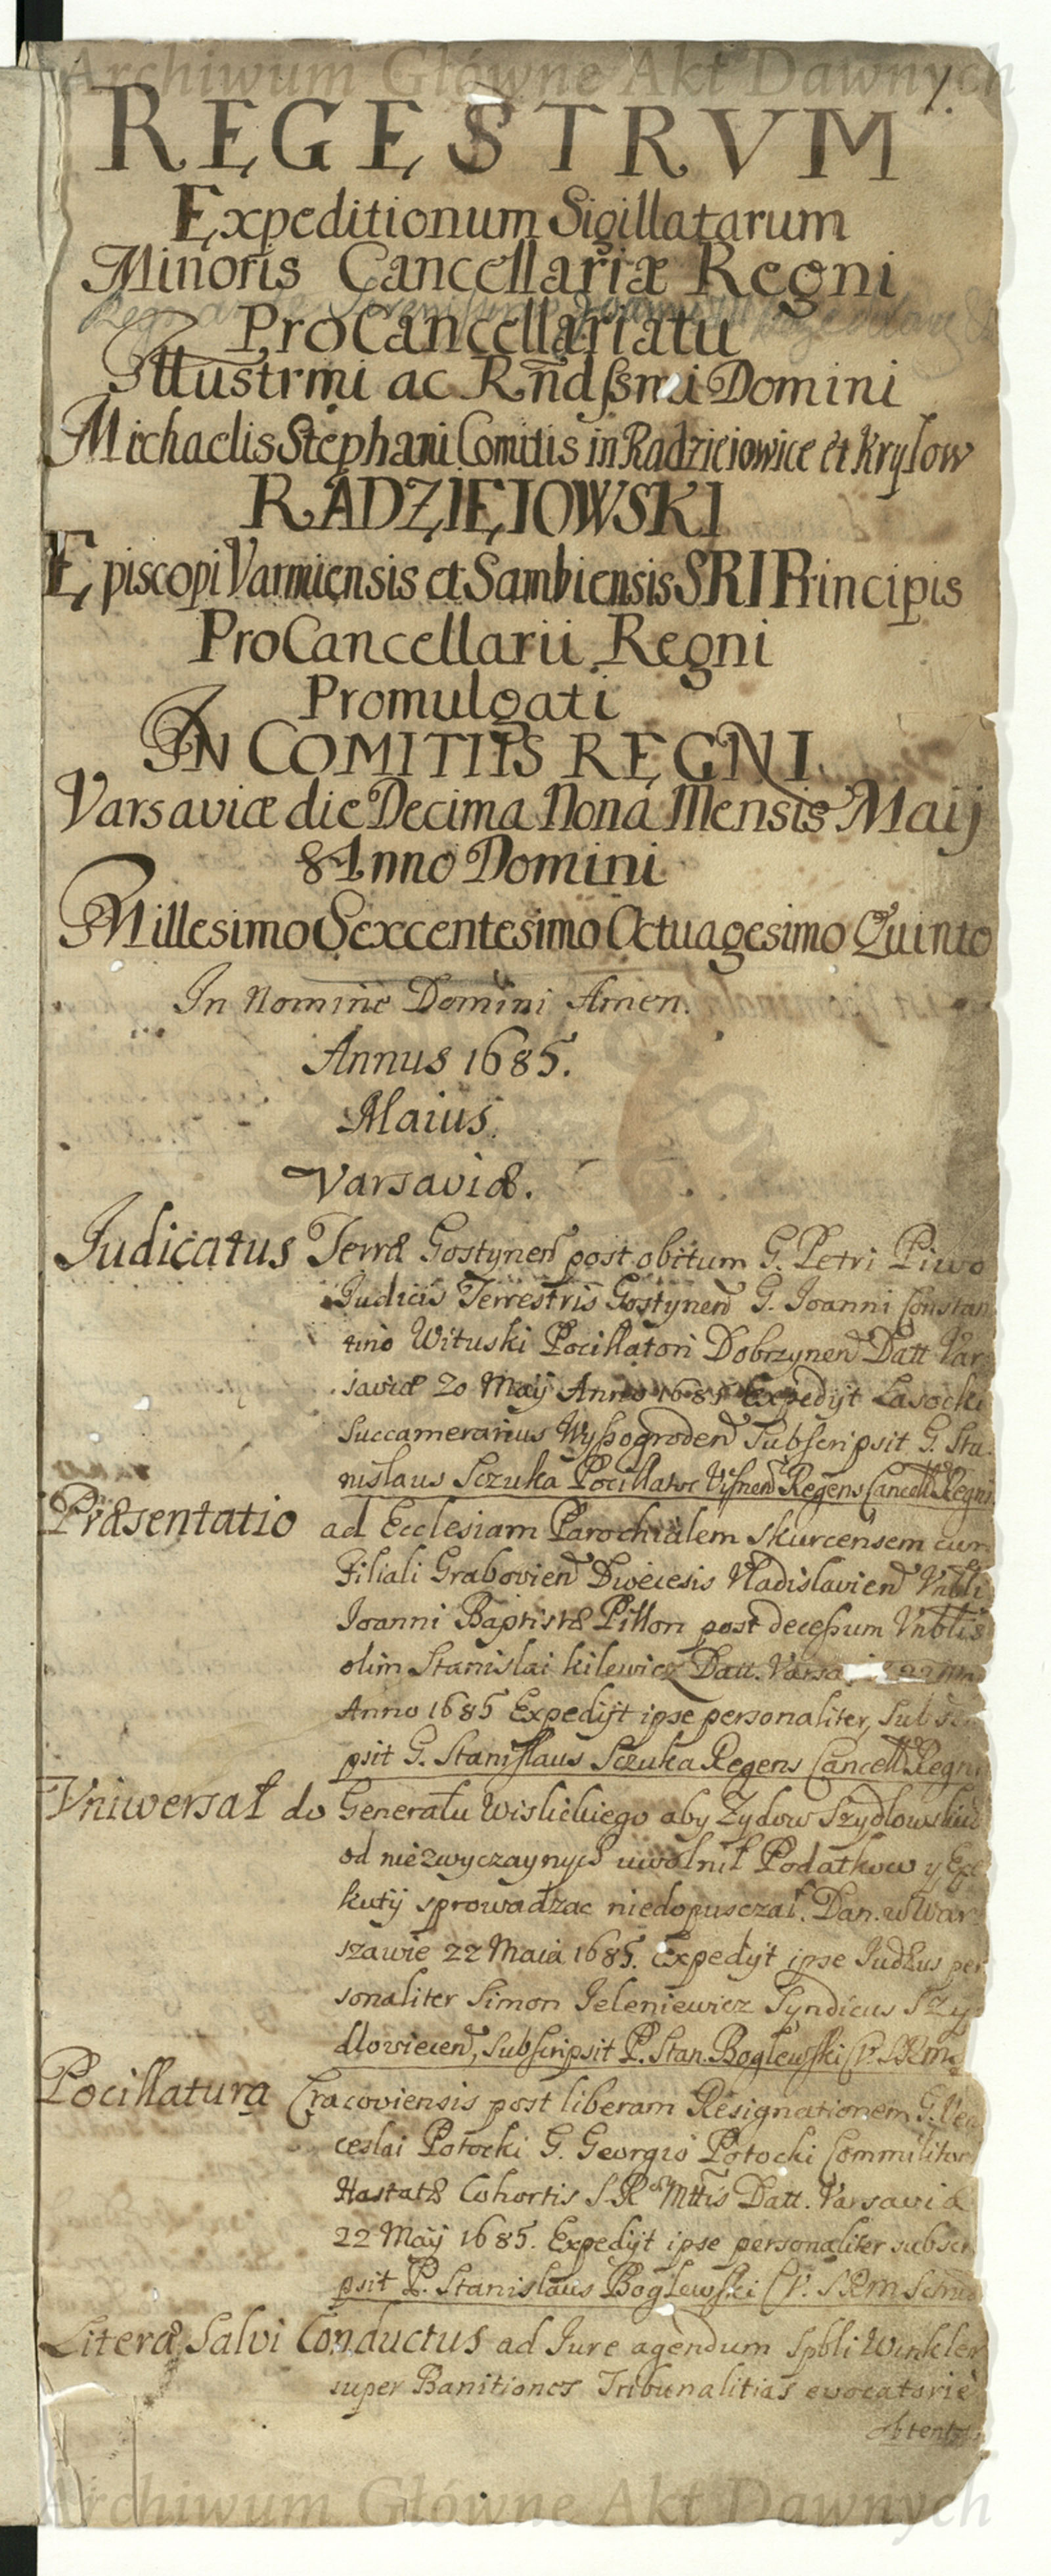 Archiwum Główne Akt Dawnych
1.
REGESTRVM
Expeditionum Sigillatarum
Minoris Cancellariæ Regni
ProCancellariatu
Illustrmi ac Rndssmi Domini
Michaelis Stephani Comitis in Radzieiowice et Krylow
RADZIEIOWSKI
Episcopi Varmiensis et Sambiensis SRI Principis
ProCancellarii Regni
Promulgati
IN COMITIIS REGNI
Varsaviæ die Decima Nona Mensis Maij
Anno Domini
Millesimo Sexcentesimo Octuagesimo Quinto
In Nomine Domini Amen.
Annus 1685.
Maius
Varsaviæ.
Judicatus Terræ Gostynen post obitum G. Petri Piwo
Judicis Terrestris Gostynen G. Joanni Constan
tino Wituski Pocillatori Dobrzynen Datt Var
saviæ 20 Maij Anno 1685 Expedijt Lasocki
Succamerarius Wyßogroden Subscripsit G. Sta
nislaus Sczuka Pocillator Visnen Regens Cancell Regni
Præsentatio ad Ecclesiam Parochialem Skurcensem cum
Filiali Grabovien Diœcesis Vladislavien Vnbli
Joanni Baptistæ Pillon post deceßum Vnblis
olim Stanislai Kilewicz Datt. Varsa
Anno 1685 Expedijt ipse personaliter, Subscri
psit G. Stanislaus Sczuka Regens Cancell Regni
Vniwersał do Generału Wislickiego aby Zydow Szydlowskich
od niezwyczaynych uwolnił Podatkow y Exe
kutij sprowadzac niedopusczał. Dan. w War
szawie 22 Maia 1685. Expedijt ipse Judæus per
sonaliter Simon Jeleniewicz Syndicus Szy
dloviecen, Subscripsit P. Stan. Boglewski
Pocillatura Cracoviensis post liberam Resignationem G. Ven
ceslai Potocki G. Georgio Potocki Commilitoni
Hastatæ Cohortis S. R. Mttis Datt. Varsaviæ
22 Maij 1685. Expedijt ipse personaliter subscri
psit P. Stanislaus Boglewski
Literæ Salvi Conductus ad Jure agendum Spbli Winkler
super Banitiones Tribunalitias evocatorie
obtentas
Archiwum Główne Akt Dawnych